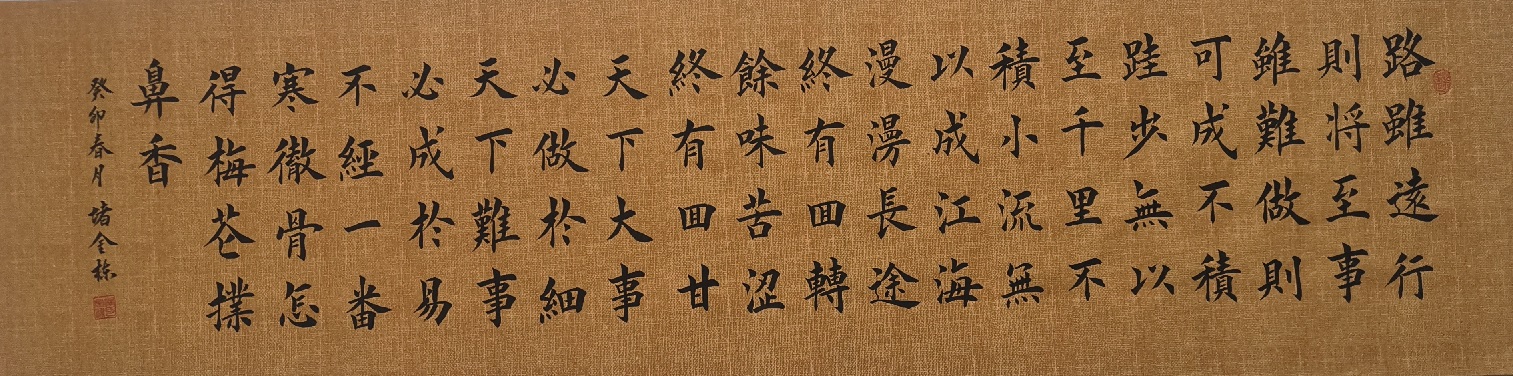 路雖遠行
則将至事
雖難做則
可成不積
跬步無以
至千里不
積小流無
以成江海
漫漫長途
終有囬轉
餘味苦涩
終有囬甘
天下大事
必做於細
天下難事
必成於易
不經一番
寒徹骨怎
得梅花撲
鼻香
癸卯春月 堵金栋